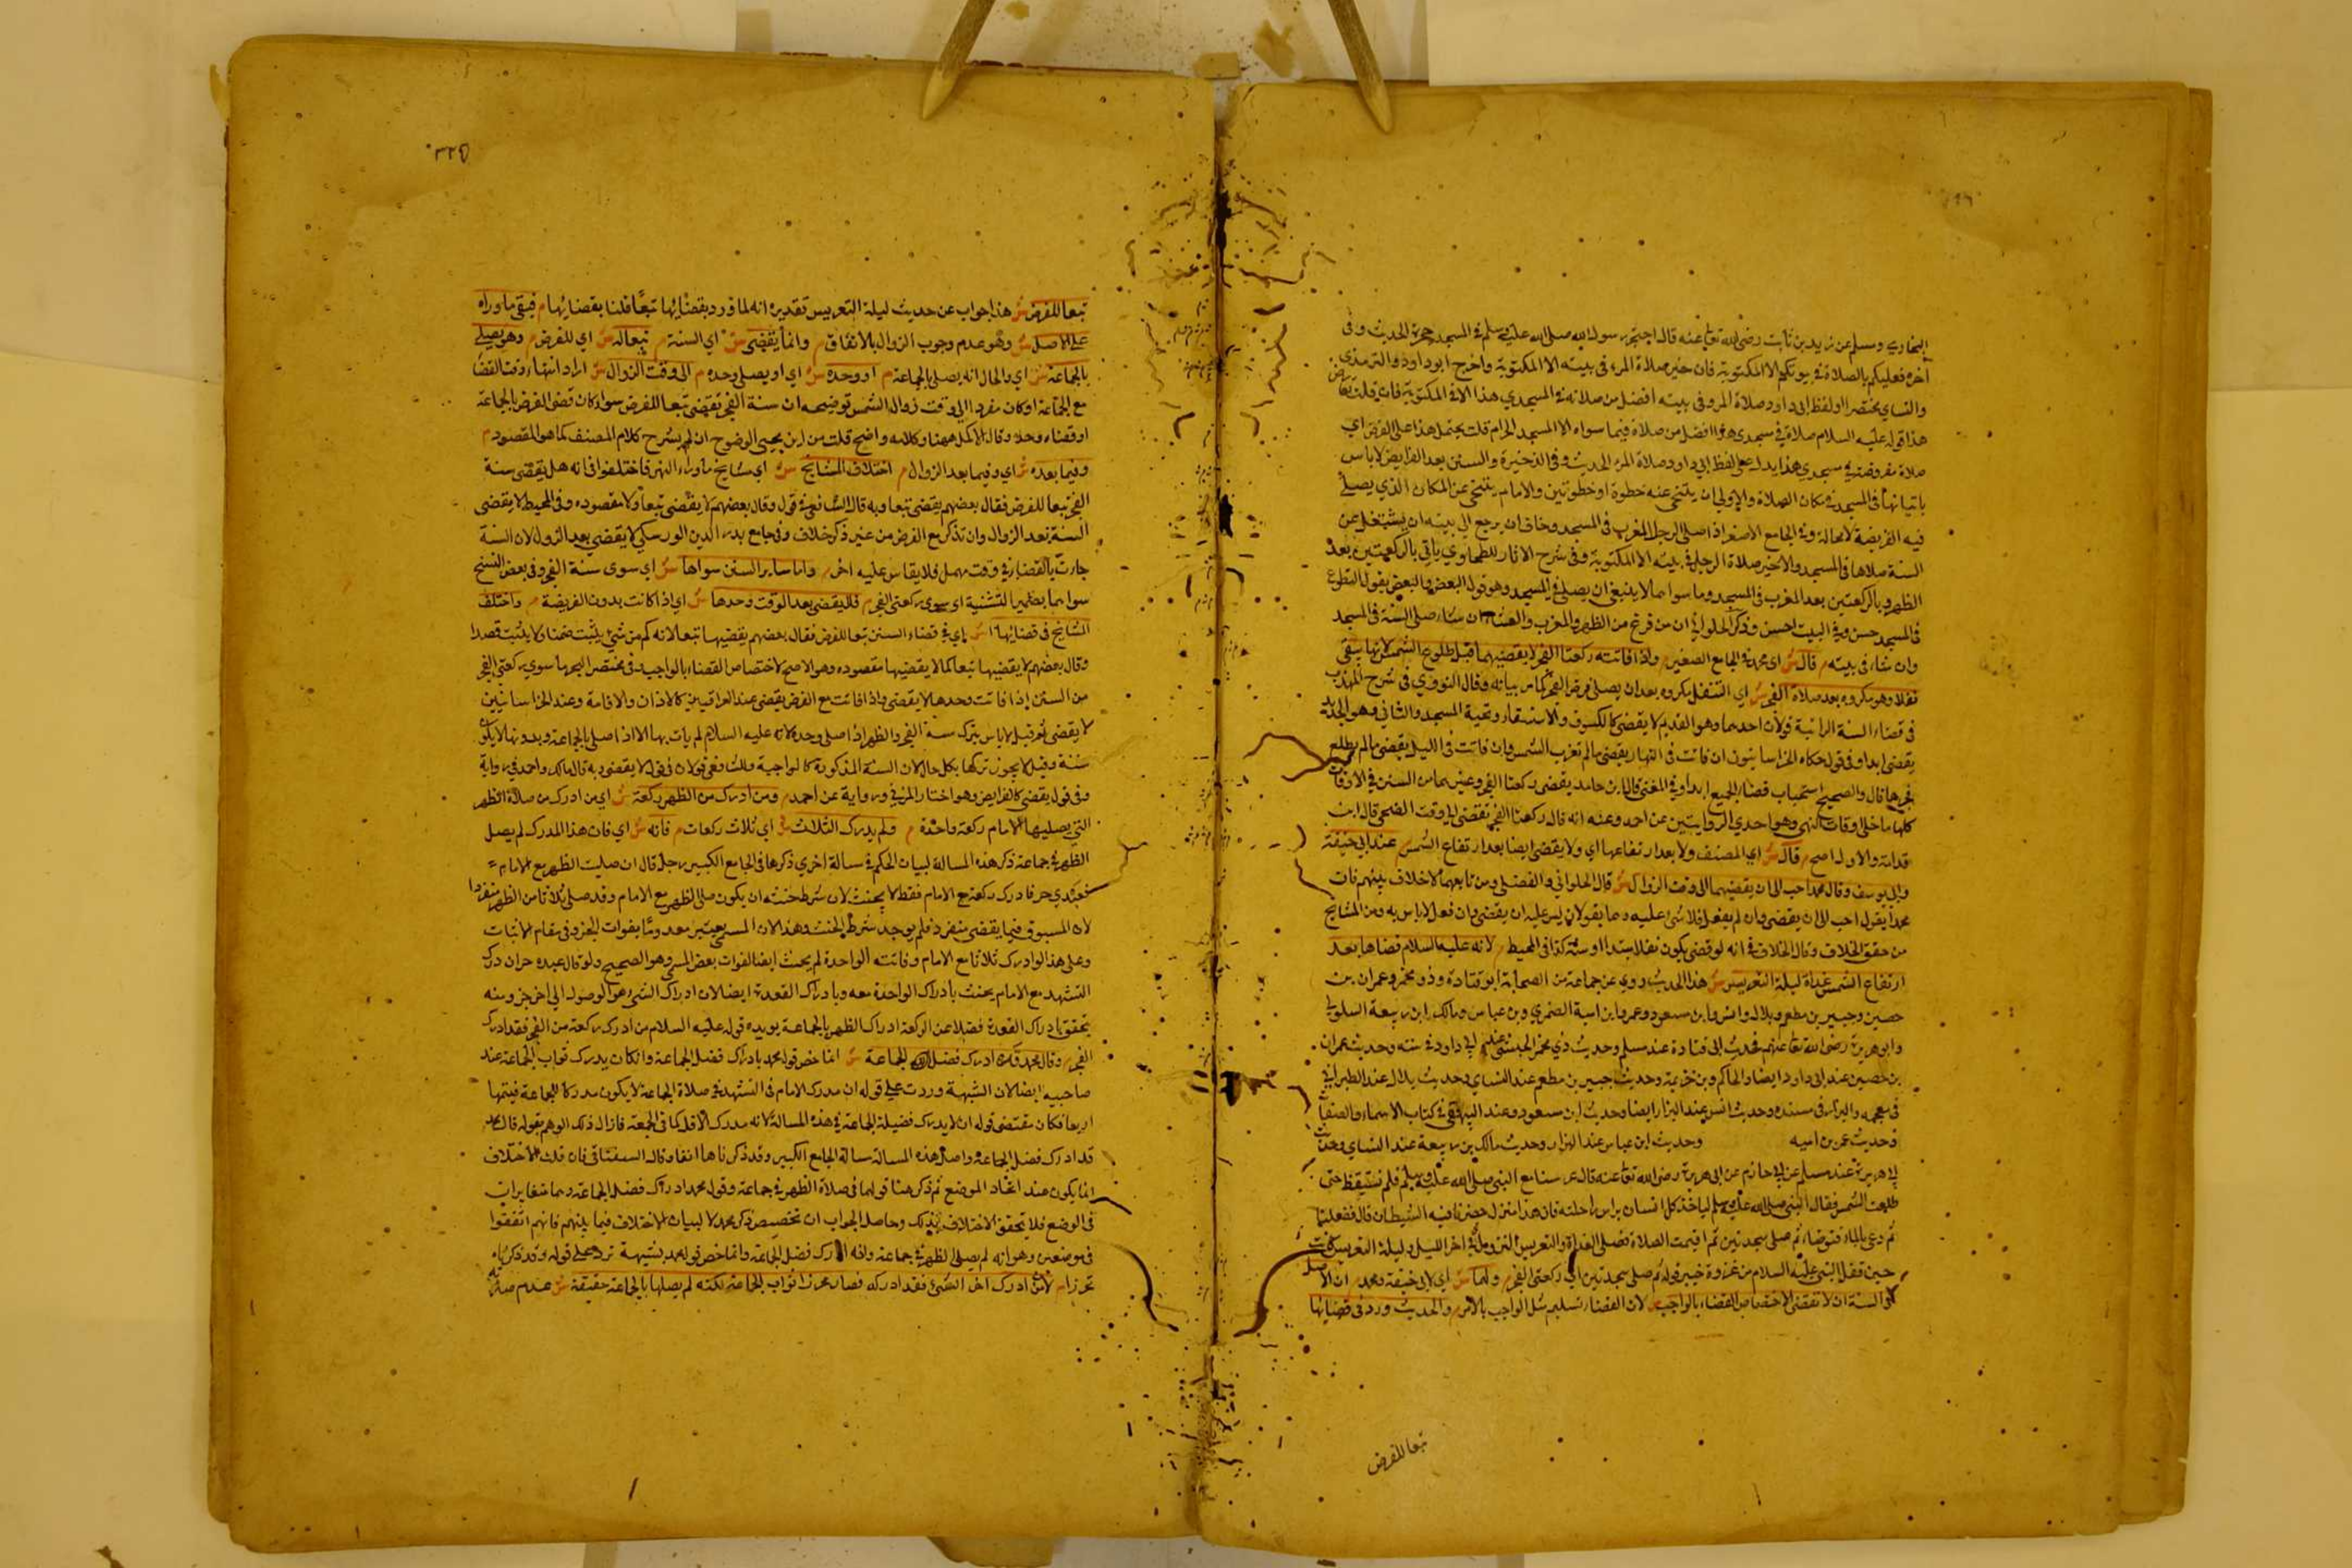 البخاري ومسلم عن زيد بن ثابت رضي الله تعالى عنه قال احتجر رسول الله صلى الله عليه وسلم في المسجد حجرة الحديث وفى
اخره فعليكم بالصلاة في بيوتكم الا المكتوبة فان خير صلاة المرء فى بيته الا المكتوبة واخرج ابو داود والترمذي
والنساي مختصرا ولفظ ابى داود صلاة المرء فى بيته افضل من صلاته في المسجدي هذا الا المكتوبة فان قلت
هذا قوله عليه السلام صلاة في مسجدى هذا افضل من صلاة فيما سواه الا المسجد الحرام قلت يحتمل هذا على الفرض اي
صلاة مفروضة في مسجدي هذا يدل على لفظ ابي داود صلاة المرء الحديث وفى الذخيرة والسنن بعد الفرايض لا باس
باتيانها فى المسجد في مكان الصلاة والاولى ان يتنحى عنه خطوة او خطوتين والامام يتنحى عن المكان الذي يصلى
فيه الفريضة لا محالة وفي الجامع الاصغر اذا صلى الرجل المغرب فى المسجد وخاف ان يرجع الى بيته ان يشتغل عن
السنة صلاها فى المسجد والاخير صلاة الرجل فى بيته الا المكتوبة وفى شرح الاثار للطحاوي ياتى بالركعتين بعد
الظهر وبالركعتين بعد المغرب فى المسجد وما سواهما لا ينبغي ان يصلى في المسجد وهو قول البعض والبعض يقول التطوع
فى المسجد حسن وفي البيت احسن وذكر الحلواني ان من فرغ من الظهر والمغرب والعشاء ان شاء صلى السنة فى المسجد
وان شاء فى بيته م قال ش اى محمد في الجامع الصغير م واذا فاتته ركعتا الفجر لا يقضيهما قبل طلوع الشمس لانها يبقى
نفلا وهو مكروه بعد صلاة الفجر ش اي التنفل مكروه بعد ان يصلى فرض الفجر كما مر بيانه وقال النووي فى شرح المهذب
فى قضاء السنة الراتبة قولان احدهما وهو القديم لا يقضى كالكسوف والاستسقاء وتحية المسجد والثانى وهو الجديد
يقضى ابدا وفى قول حكاه الخراسانيون ان فاتت فى النهار يقضى ما لم تغرب الشمس وان فاتت فى الليل يقضى ما لم يطلع
فجرها قال والصحيح استحباب قضاء الجميع ابدا وفي المغنى قال ابن حامد يقضى ركعتا الفجر وغيرهما من السنن في الاوقات
كلها ما خلا اوقات النهى وهو احدي الروايتين عن احمد وعنه انه قال ركعتا الفجر تقضى الى وقت الضحى قال ابن
قدامة والاول اصح م قال ش اي المصنف ولا بعد ارتفاعها اي ولا يقضى ايضا بعد ارتفاع الشمس م عند ابى حنيفة
وابى يوسف وقال محمد احب الى ان يقضيهما الى وقت الزوال ش قال الحلواني والفضلى ومن تابعهما لا خلاف بينهم فان
محمدا يقول احب الى ان يقضى وان لم يفعل فلا شئ عليه وهما يقولان ليس عليه ان يقضى وان فعل لا باس به ومن المشايخ
من حقق الخلاف وقال الخلاف في انه لو قضى يكون نفلا مبتدا او سنة كذا فى المحيط م لانه عليه السلام قضاها بعد
ارتفاع الشمس غداة ليلة التعريس ش هذا الحديث روي عن جماعة من الصحابة ابو قتادة وذو مخبر وعمران بن
حصين وجبير بن مطعم وبلال وانس وابن مسعود وعمرو بن امية الضمري وبن عباس ومالك ابن ربيعة السلولى
وابو هريرة رضى الله تعالى عنهم فحديث ابى قتادة عند مسلم وحديث ذي مخبر الحبشى عند ابى داود في سننه وحديث عمران
بن حصين عند ابى داود ايضا والحاكم وبن خزيمة وحديث جبير بن مطعم عند النساي وحديث بلال عند الطبرانى
فى معجمه والبزار فى مسنده وحديث انس عند البزار ايضا وحديث ابن مسعود وعند البيهقى في كتاب الاسماء والصفات
وحديث عمرو بن اميه وحديث ابن عباس عند البزار وحديث مالك بن ربيعة عند النساي وحديث
ابى هريرة عند مسلم عن ابى حازم عن ابى هريرة رضى الله تعالى عنه قال عرسنا مع النبى صلى الله عليه وسلم فلم نستيقظ حتى
طلعت الشمس فقال النبى صلى الله عليه وسلم لياخذ كل انسان براس راحلته فان هذا منزل حضرنا فيه الشيطان قال ففعلنا
ثم دعى بالماء فتوضاء ثم صلى سجدتين ثم اقيمت الصلاة فصلى الغداة والتعريس النزول في اخر الليل وليلة التعريس كانت
حين قفل النبى عليه السلام من غزوة خيبر قوله ثم صلى سجدتين اي ركعتى الفجر م ولهما ش اي لابى حنيفة ومحمد م ان الاصل
فى السنة ان لا تقضى لاختصاص القضاء بالواجب م لان القضاء تسليم مثل الواجب بالامر م والحديث ورد فى قضايها
تبعا للفرض
تبعا للفرض ش هذا جواب عن حديث ليلة التعريس تقديره انه لما ورد بقضائها تبعا قلنا بقضائها م فبقى ما وراه
على الاصل ش وهو عدم وجوب الزوال بالاتفاق م وانما يقضى ش اي السنة م تبعا له ش اي للفرض م وهو يصلى
بالجماعة ش اي والحال انه يصلى بالجماعة م او وحده ش اي او يصلى وحده م الى وقت الزوال ش اراد انتهاء وقت القضا
مع الجماعة او كان مفردا الى وقت زوال الشمس توضيحه ان سنة الفجر يقضى تبعا للفرض سواء كان قضى الفرض بالجماعة
او قضاه وحده وقال الاكمل ههنا وكلامه واضح قلت من اين يجيى الوضوح ان لم يشرح كلام المصنف كما هو المقصود م
وفيما بعده ش اي وفيما بعد الزوال م اختلاف المشايخ ش اي مشايخ ما وراء النهر فاختلفوا فى انه هل يقضى سنة
الفجر تبعا للفرض فقال بعضهم يقضى تبعا وبه قال الشافعى في قول وقال بعضهم لا يقضى تبعا ولا مقصوده وفى المحيط لا يقضى
السنة بعد الزوال وان تذكر مع الفرض من غير ذكر خلاف وفى جامع بدر الدين الورسكى لا يقضى بعد الزوال لان السنة
جاءت بالقضاء في وقت مهمل فلا يقاس عليه اخر م واما ساير السنن سواها ش اي سوى سنة الفجر وفى بعض النسخ
سواهما بضمير التثنية اى سوى ركعتى الفجر م فلا يقضى بعد الوقت وحدها ش اي اذا كانت بدون الفريضة م واختلف
المشايخ فى قضائها ش اي في قضاء السنن تبعا للفرض فقال بعضهم يقضيها تبعا لانه كم من شئ يثبت ضمنا ولا يثبت قصدا
وقال بعضهم لا يقضيها تبعا كما لا يقضيها مقصوده وهو الاصح لاختصاص القضاء بالواجب وفى مختصر البحر ما سوي ركعتى الفجر
من السنن اذا فاتت وحدها لا يقضى واذا فاتت مع الفرض يقضى عند العراقيين كالاذان والاقامة وعند الخراسانيين
لا يقضى ثم قيل لا باس بترك سنة الفجر والظهر اذا صلى وحده لانه عليه السلام لم يات بها الا اذا صلى بالجماعة وبدونها لا يكون
سنة وقيل لا يجوز تركها بكل حال لان السنة المذكورة كالواجبة وللشافعى قولان فى قول لا يقضى وبه قال مالك واحمد في رواية
وفى قول يقضى كالفرايض وهو اختار المزنى ورواية عن احمد م ومن ادرك من الظهر ركعة ش اي من ادرك من صلاة الظهر
التى يصليها الامام ركعة واحدة م ولم يدرك الثلاث ش اي ثلاث ركعات م فانه ش اي فان هذا المدرك لم يصل
الظهر في جماعة ذكر هذه المسالة لبيان الحكم في مسالة اخري ذكرها فى الجامع الكبير رجل قال ان صليت الظهر مع الامام
فعبدي حر فادرك ركعة مع الامام فقط لا يحنث لان شرط حنثه ان يكون صلى الظهر مع الامام وقد صلى ثلاثا من الظهر منفردا
لان المسبوق فيما يقضى منفرد فلم يوجد شرط الحنث وهذا لان
وعلى هذا لو ادرك ثلاثا مع الامام وفاتته الواحدة لم يحنث ايضا لفوات بعض المسمى وهو الصحيح ولو قال عبده حر ان درك
التشهد مع الامام يحنث بادراك الواحدة معه وبادراك القعدة ايضا لان ادراك الشئ هو الوصول الى اخر جزو منه
يتحقق بادراك القعدة فضلا عن الركعة ادراك الظهر بالجماعة يويده قوله عليه السلام من ادرك ركعة من الفجر فقد ادرك
الفجر م وقال محمد قد ادرك فضل الجماعة ش انما خص قوله محمد بادراك فضل الجماعة وان كان يدرك ثواب الجماعة عند
صاحبيه ايضا لان الشبهة وردت على قوله ان مدرك الامام فى التشهد في صلاة الجماعة لا يكون مدركا للجماعة فيتمها
اربعا فكان مقتضى قوله ان لا يدرك فضيلة الجماعة في هذه المسالة لانه مدرك الاقل كما فى الجمعة فازال ذلك الوهم بقوله قال محمد
قد ادرك فضل الجماعة واصل هذه المسالة مسالة الجامع الكبير وقد ذكرناها انفا وقال السغناقى فان قلت الاختلاف
انما يكون عند اتحاد الموضع ثم ذكر هنا قولهما فى صلاة الظهر في جماعة وقول محمد ادراك فضل الجماعة وهما متغايران
فى الوضع فلا يتحقق الاختلاف بذلك وحاصل الجواب ان تخصيص ذكر محمد لا لبيان الاختلاف فيما بينهم فانهم اتفقوا
فى موضعين وهو انه لم يصلى الظهر في جماعة وانه ادرك فضل الجماعة وانما خص قول محمد بشبهة ترد على قوله وقد ذكرناه
م لان من ادرك اخر الشئ فقد ادركه فصار محرزا ثواب الجماعة لكنه لم يصلها بالجماعة حقيقة ش